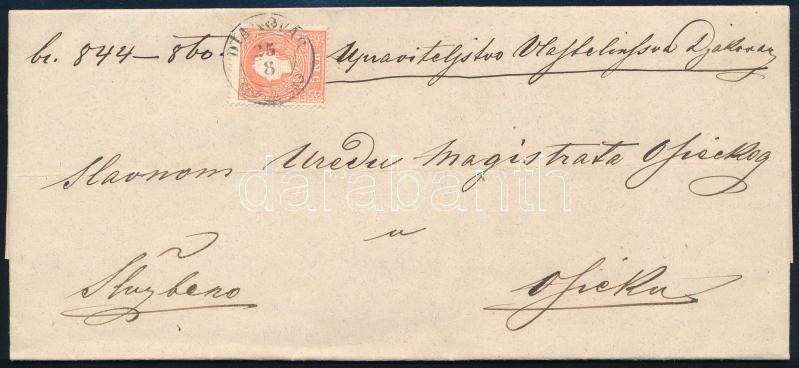 br. 844 – 860. Upraviteljstvo Vlastelinstva Djakovar
DIAKOVAR
25
8
Slavnom Uredu Magistrata Osiečkog
darabanth
u
Službeno
Osieku